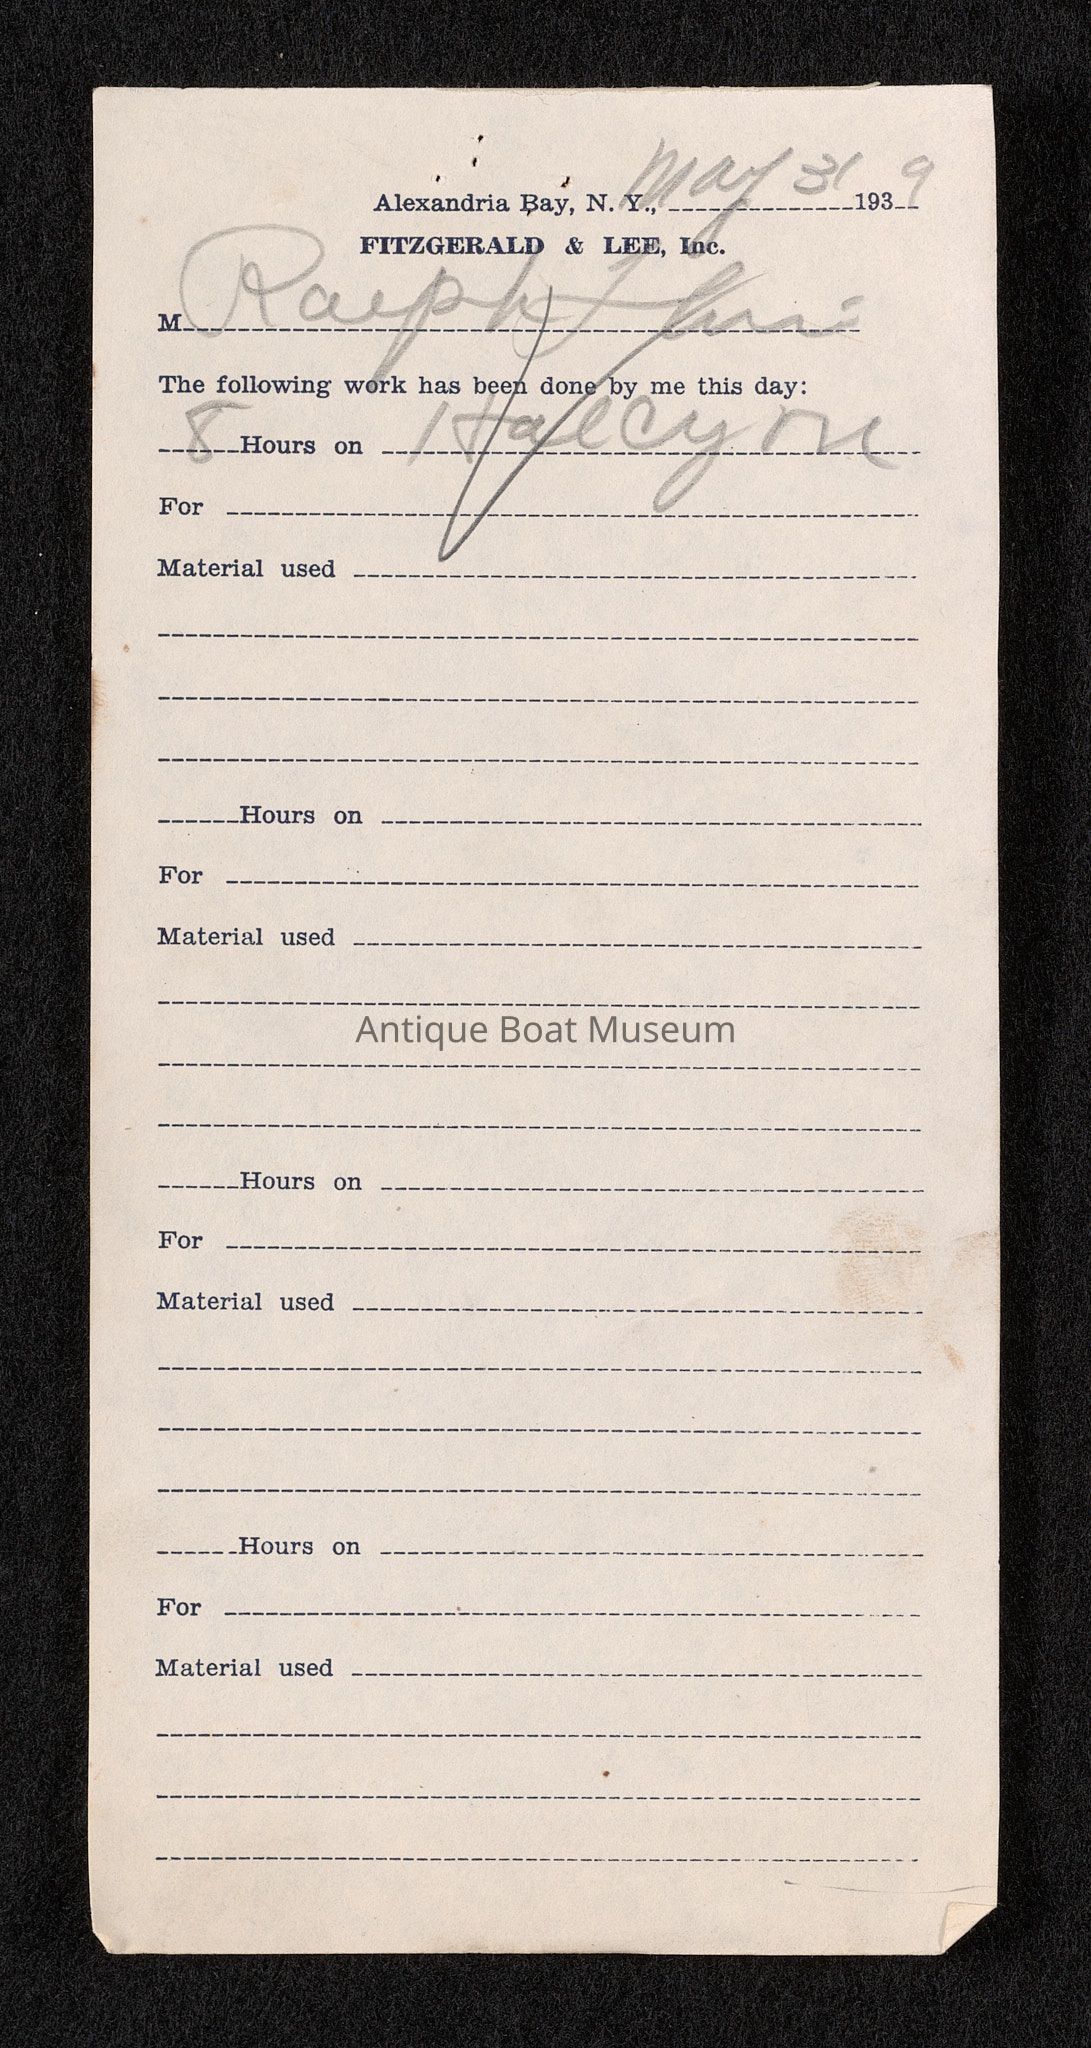 Alexandria Bay, N. Y., May 31 1939
FITZGERALD & LEE, Inc.
M Ralph
The following work has been done by me this day:
8 Hours on Halcyon
For
Material used
Hours on
For
Material used
Antique Boat Museum
Hours on
For
Material used
Hours on
For
Material used